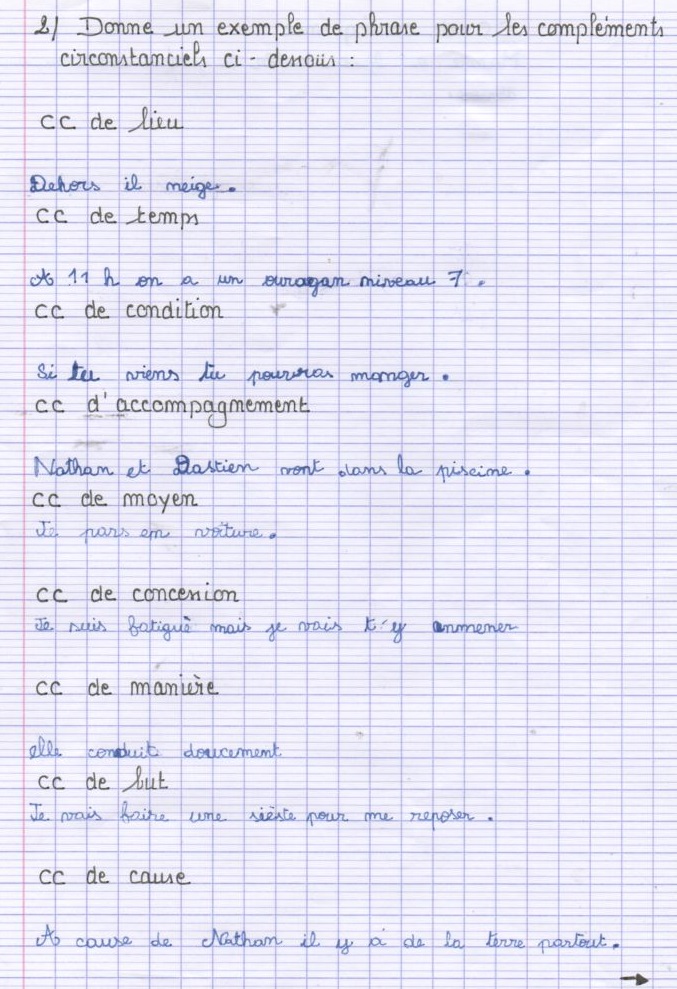 2/ Donne un exemple de phrase pour les compléments
circonstanciels ci-dessous :
CC de lieu
Dehors il neige.
CC de temps
A 11 h on a un ouragan niveau 7.
CC de condition
Si tu viens tu pourras manger.
CC d'accompagnement
Nathan et Bastien vont dans la piscine.
CC de moyen
Je pars en voiture.
CC de concession
Je suis fatigué mais je vais t'y anmener
CC de manière
elle conduit doucement
CC de but
Je vais faire une sièste pour me reposer.
CC de cause
A cause de Nathan il y à de la terre partout.
→